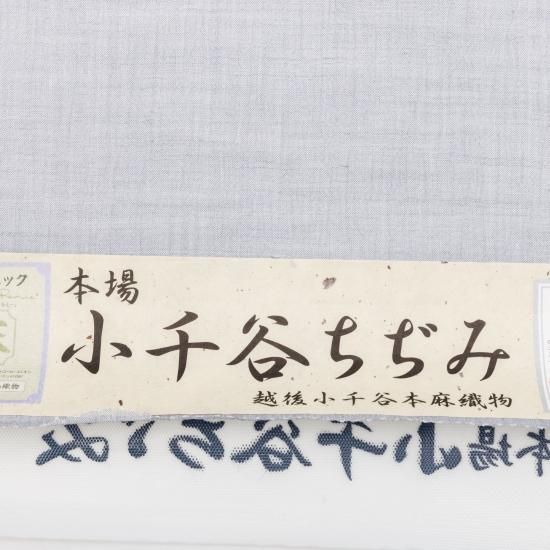 本場
小千谷ちぢみ
越後小千谷本麻織物
ック
織物
本場小千谷ちぢみ